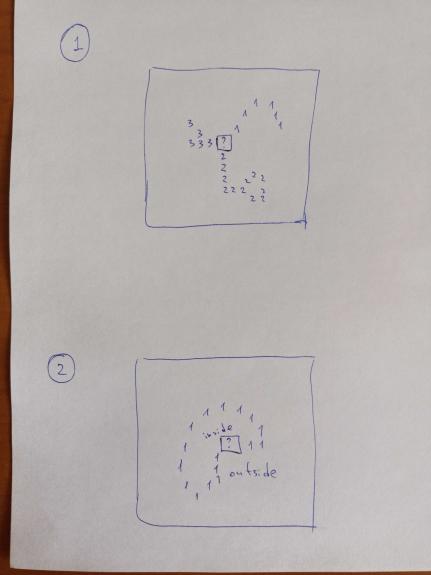 1
1 1
1 1
3 1 1
3
3 3 3 ?
2
2
2 2 2 2
2 2 2 2
2 2
2
1 1 1
1 1
1 inside 1
1 ? 1 1
1
1 1 outside
1 1 1
1